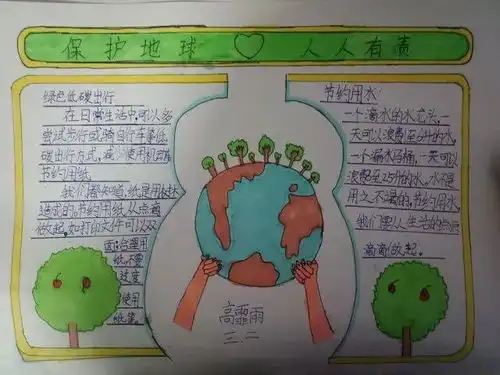 保护地球 人人有责
绿色低碳出行
在日常生活中可以多
尝试步行或骑自行车等低
碳出行方式，减少使用机动车
节约用纸
我们都知道，纸是用树木
造成的，节约用纸，从点滴
做起，如打印文件可以双
面；合理用
纸不要
过度
使用
纸箱。
节约用水
一个滴水的水龙头，一
天可以浪费至6升的水，
一个漏水马桶，一天可以
浪费至25升的水，水不是
用之不竭的，节约用水
我们要从生活的点点
滴滴做起。
高雨
三.二